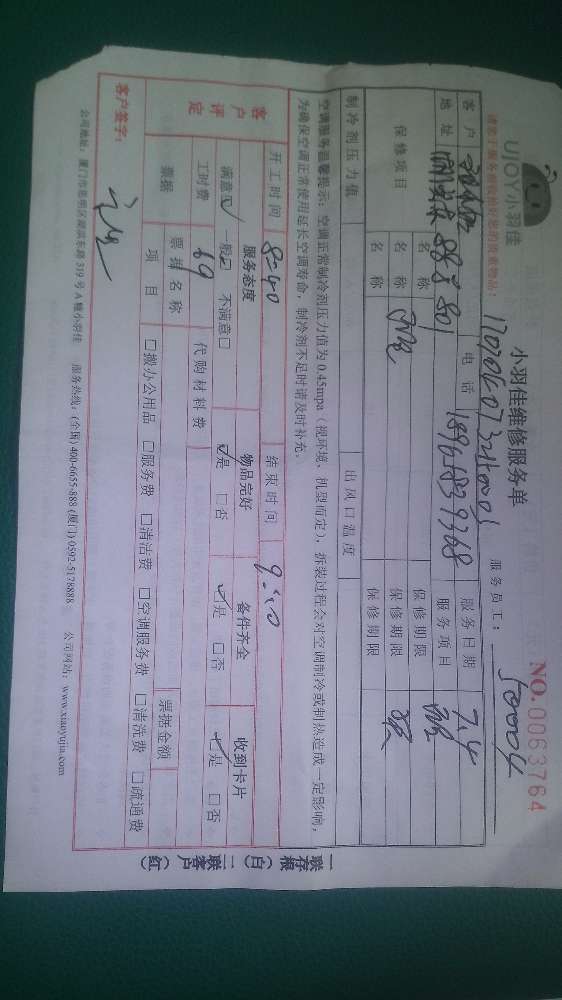 UJOY小羽佳
小羽佳维修服务单
NO.0063764
请您于服务前收拾好您的贵重物品:
服务员工: 50004
客户
电话 18965839368
服务日期 7.4
地址 88号801
服务项目
保修项目
名称
保修期限
名称
保修期限
名称
保修期限
制冷剂压力值
出风口温度
空调服务温馨提示:空调正常制冷剂压力值为0.45mpa(视环境、机型而定),拆装过程会对空调制冷或制热造成一定影响,
为确保空调正常使用延长空调寿命,制冷剂不足时请及时补充。
客户评定
开工时间 8:40
结束时间 9:10
服务态度
物品完好
备件齐全
收到卡片
满意☑ 一般□ 不满意□
☑是 □否
☑是 □否
☑是 □否
工时费 69
代购材料费
票据
票据名称
票据金额
项目
□搬办公用品 □服务费 □清洁费 □空调服务费 □清洗费 □疏通费
客户签字:
公司地址:厦门市思明区湖滨东路319号A幢小羽佳 服务热线:(全国) 400-6655-888 (厦门) 0592-5178888 公司网站:www.xiaoyujia.com
一联存根(白) 二联客户(红)